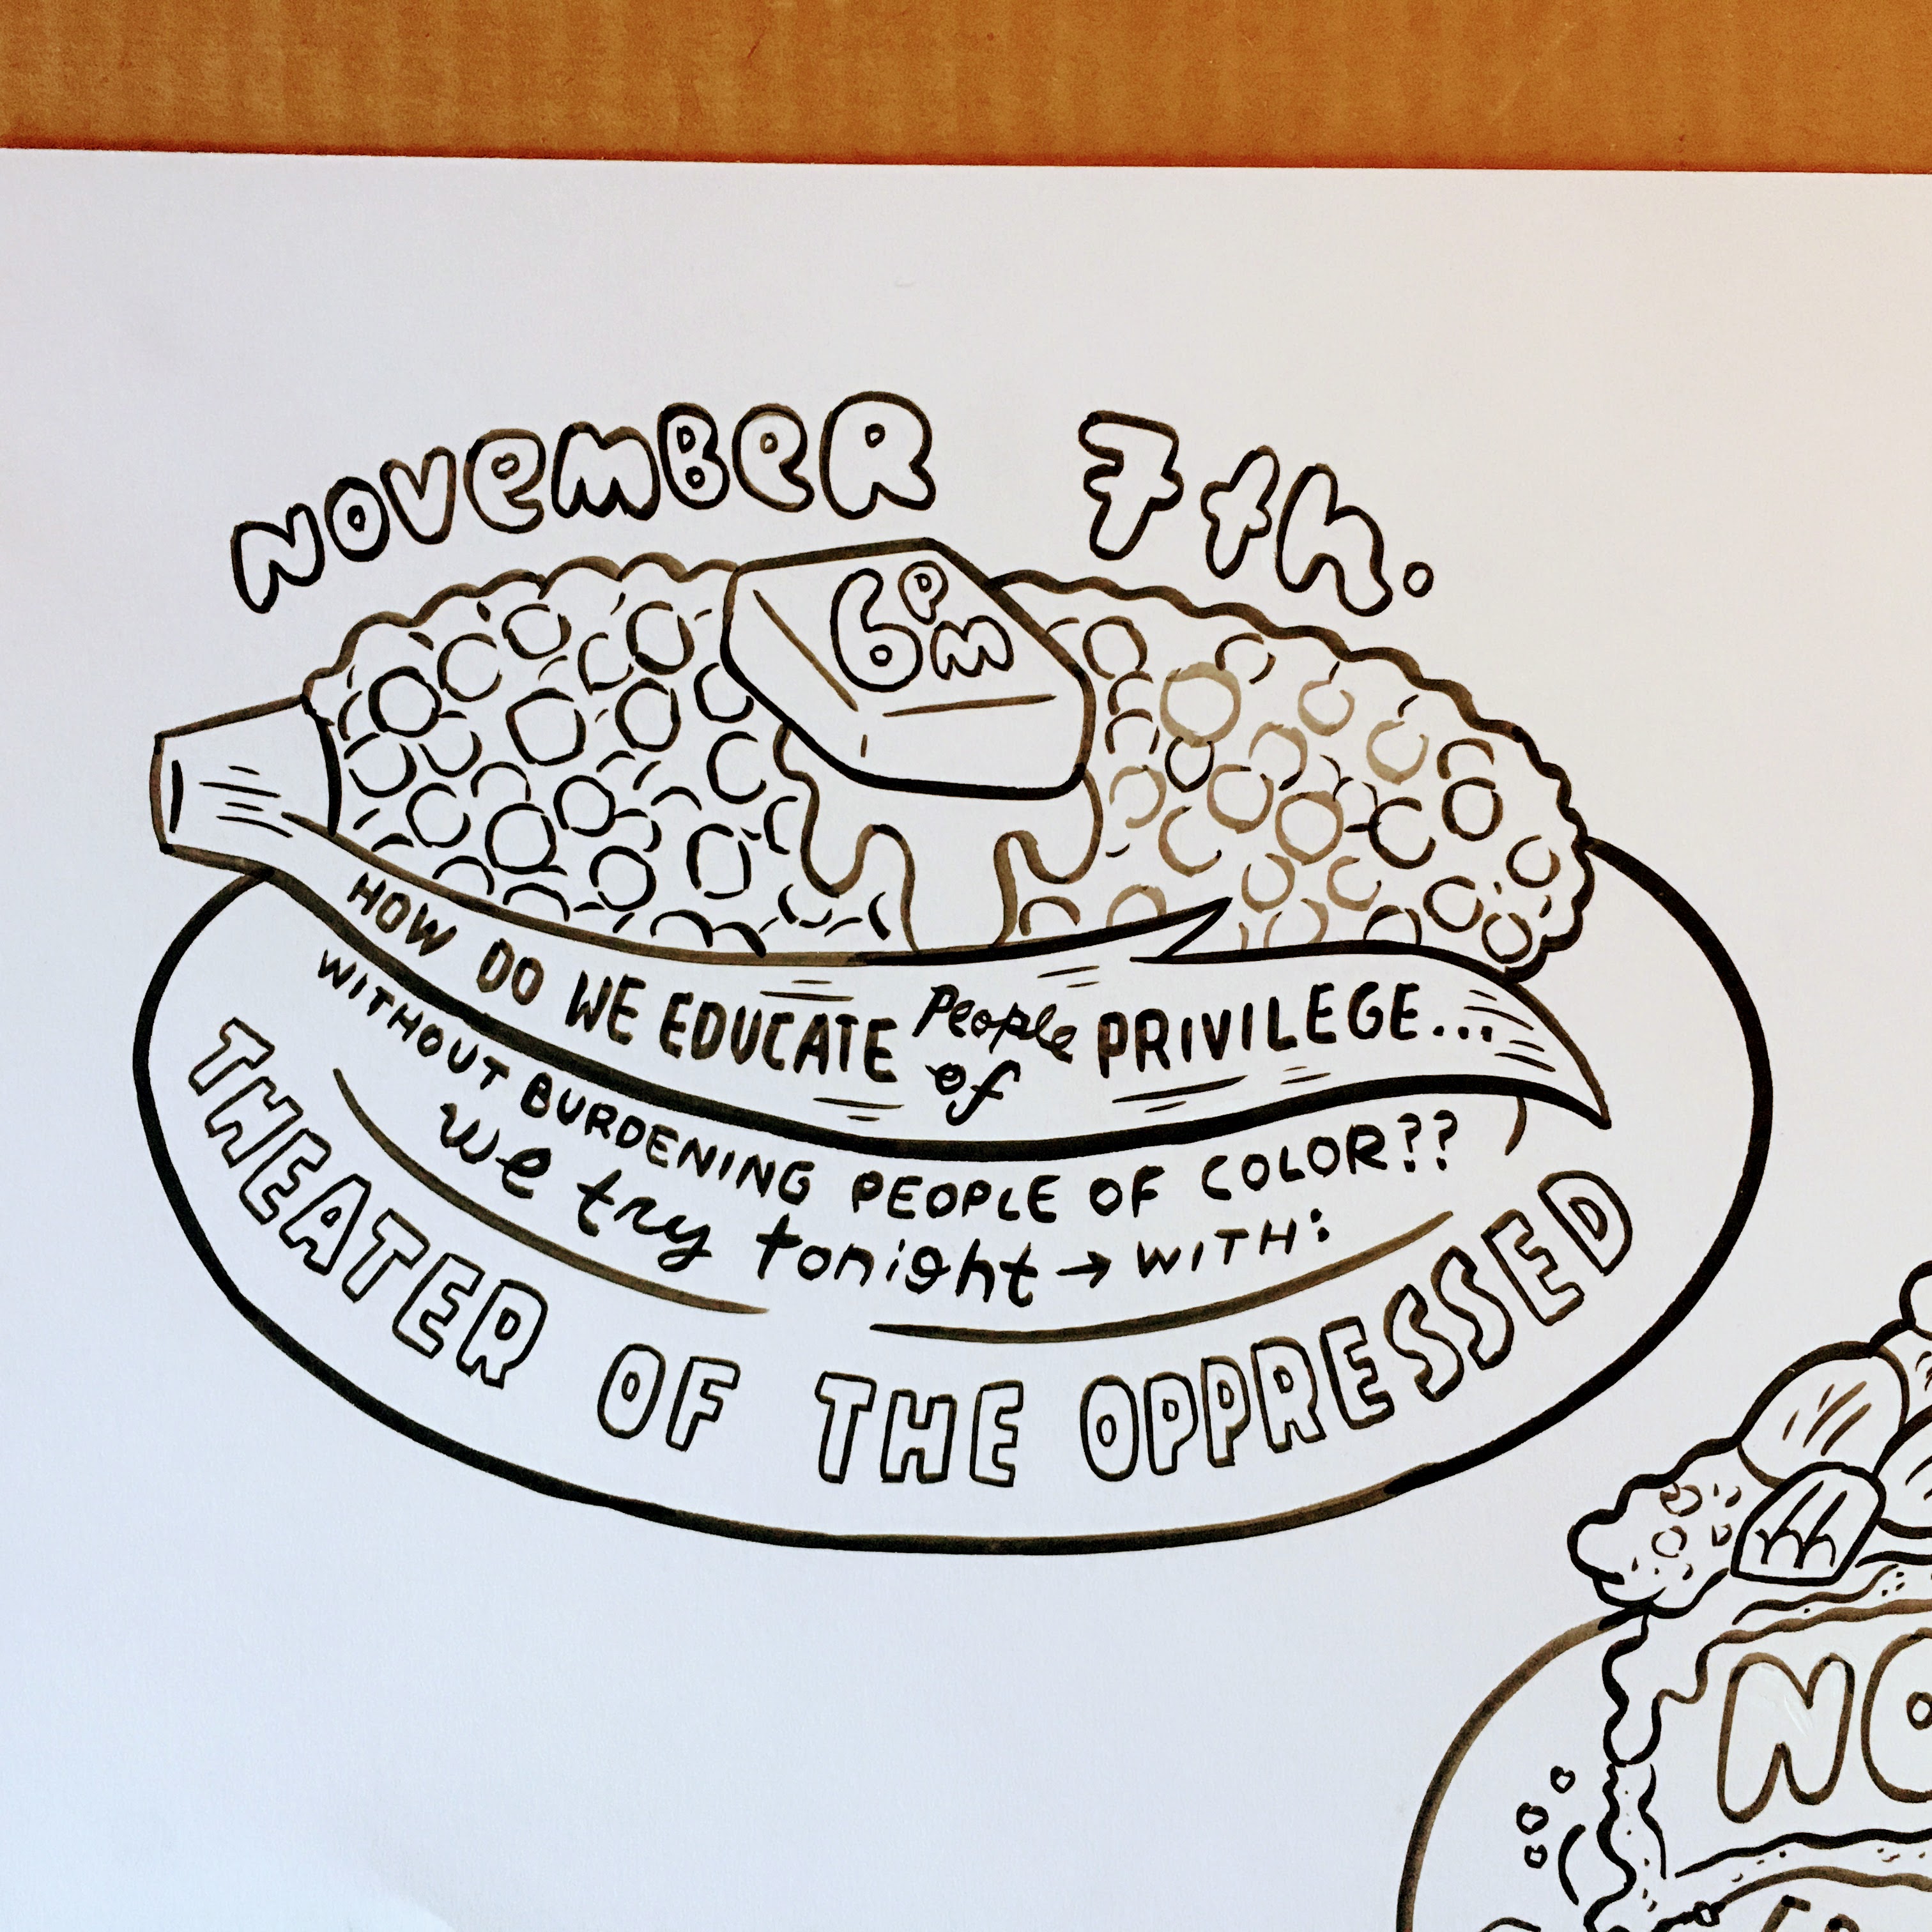 NOVEMBER 7th.
6PM
HOW DO WE EDUCATE People of PRIVILEGE...
WITHOUT BURDENING PEOPLE OF COLOR??
we try tonight → WITH:
THEATER OF THE OPPRESSED
NO